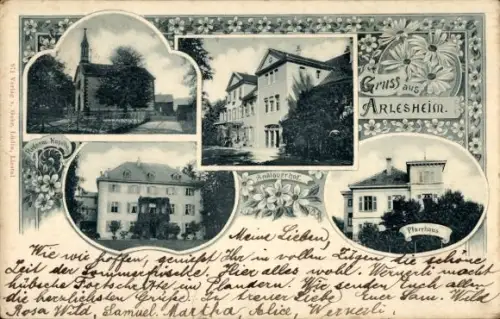 Gruss aus
ARLESHEIM.
Andlauerhof.
Pfarrhaus.
Meine Lieben,
Wie wir hoffen, genießt Ihr in vollen Zügen die schöne
Zeit der Sommerfrische. Hier alles wohl. Wernerli macht
hübsche Fortschritte im Plaudern. Wir senden Euch allen
die herzlichsten Grüße. In treuer Liebe Eure Sam. Wild
Rosa Wild, Samuel. Martha, Alice, Wernerli.